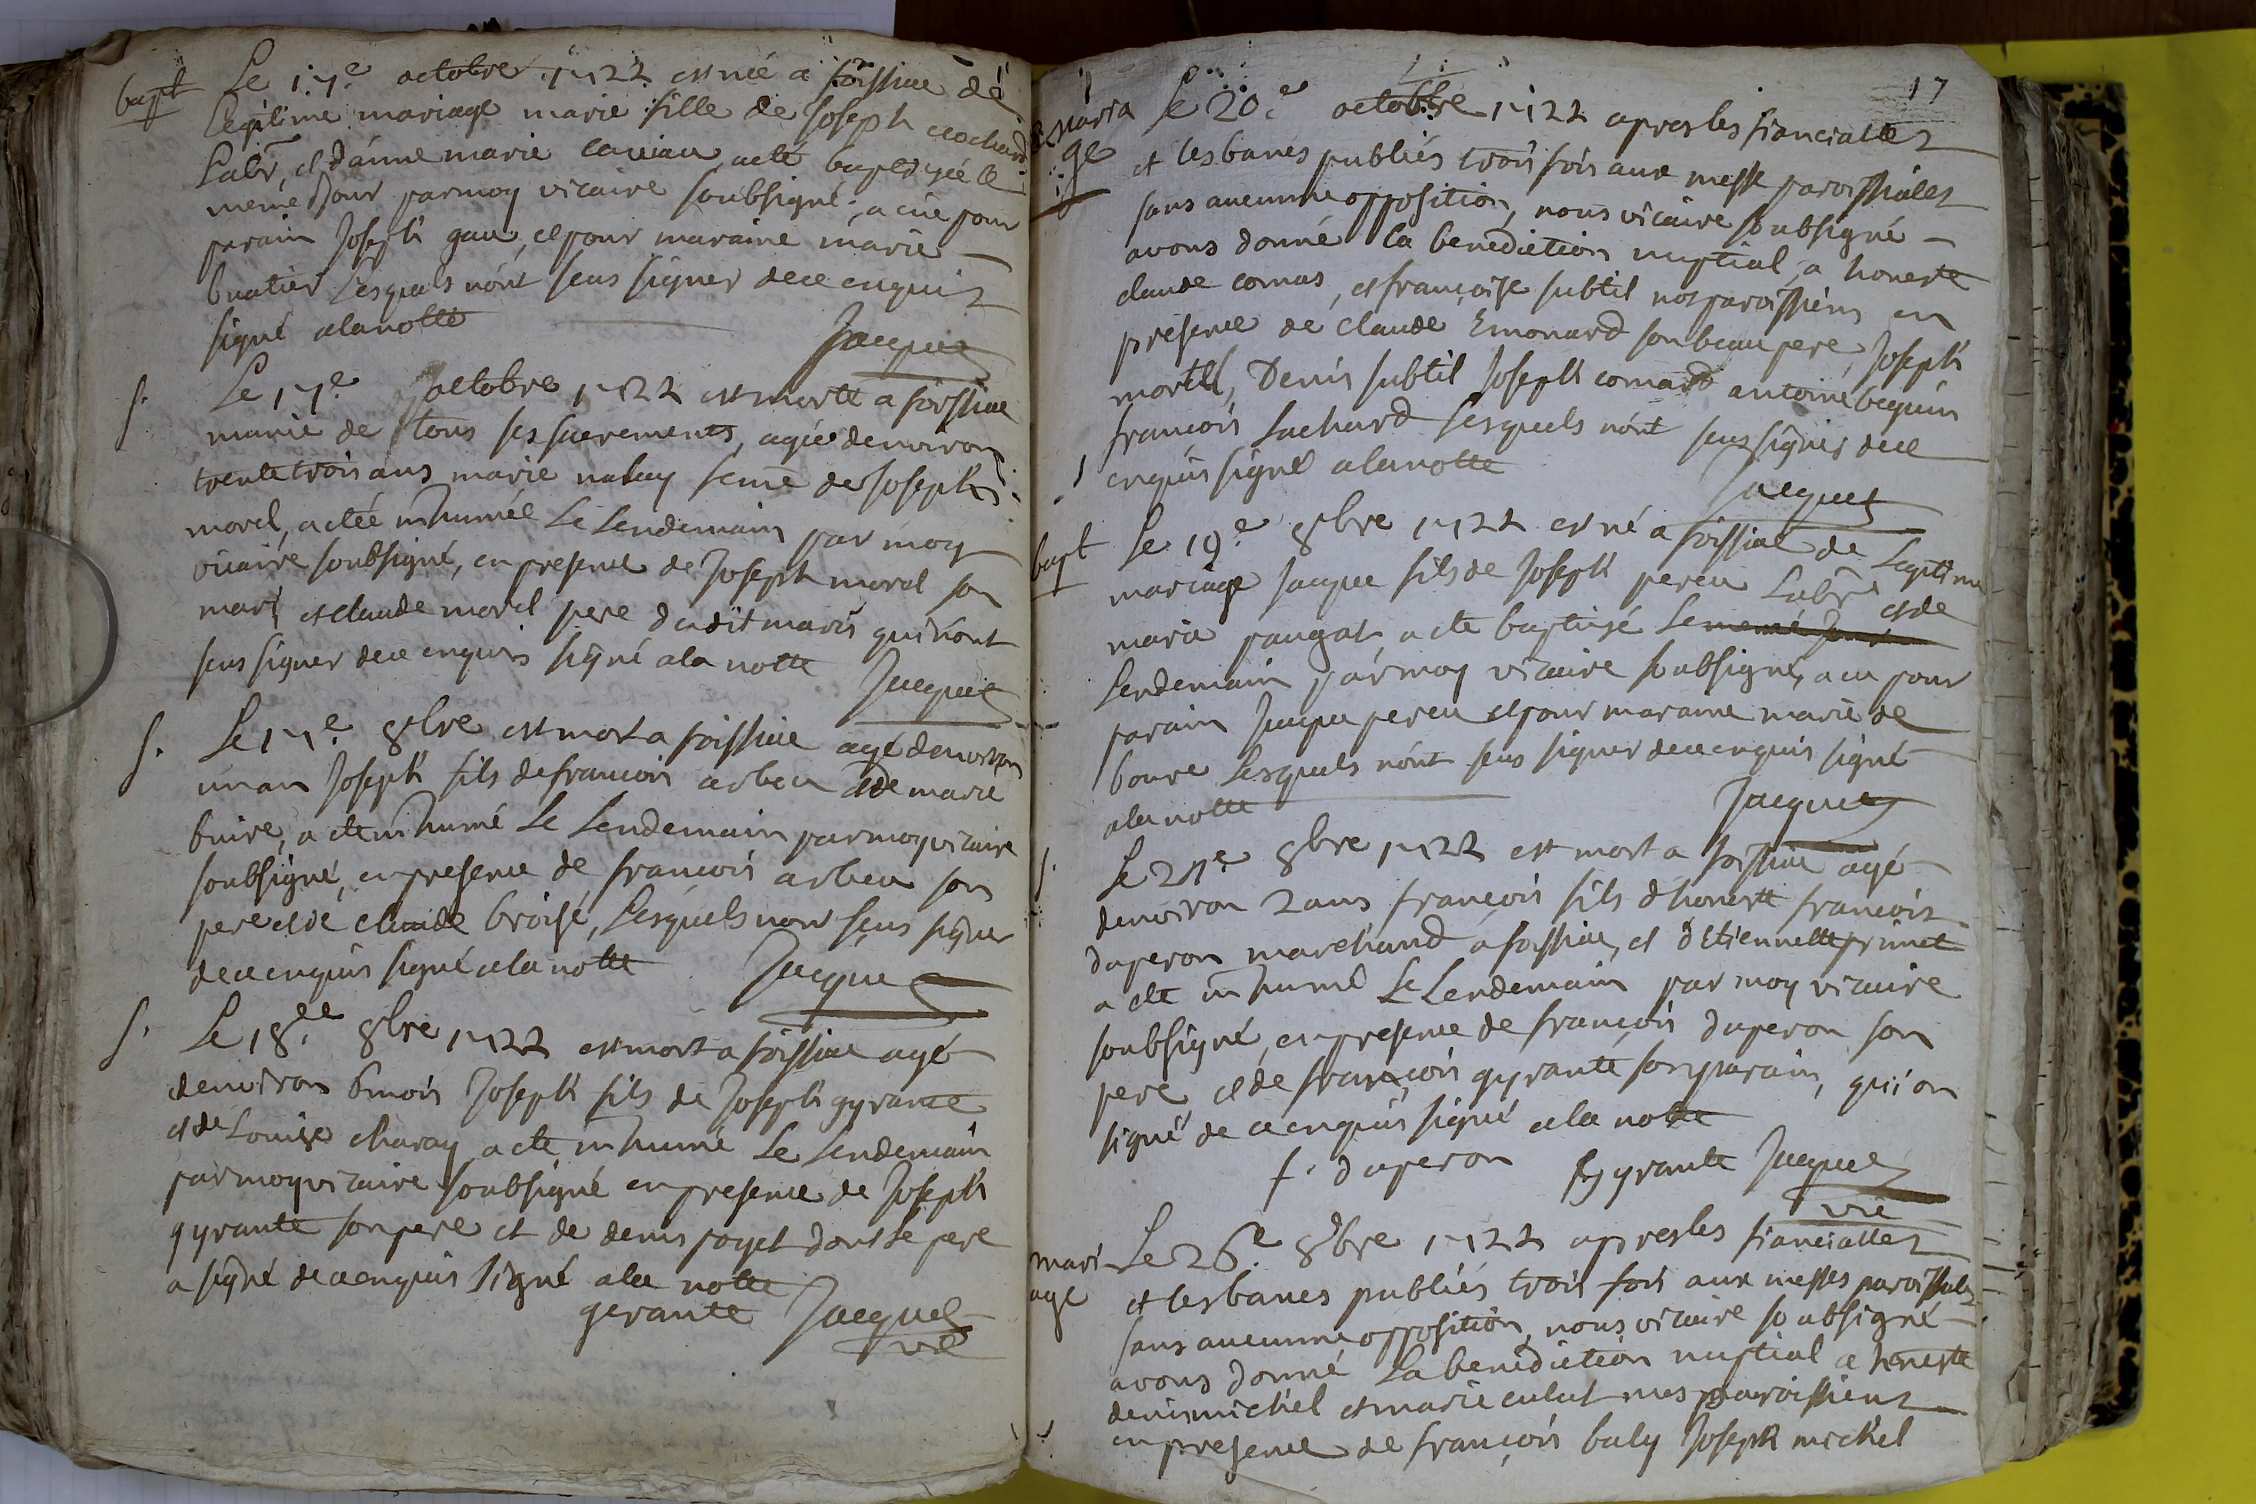 bapt
Le 17.e octobre 1722 est née a foissiac de
Legitime mariage marie fille de Joseph cochard
Labr, et d'anne marie caniau, a eté baptisée le
meme Jour par moy vicaire soubsigné; a eue pour
parain Joseph gau, et pour maraine marie
buatier Lesquels n'ont seus signer de ce enquis
signé a la notte
Jacques
f.
Le 17.e octobre 1722 est morte a foissiac
munie de tous ses sacrements, agée denviron
trente trois ans marie nalay feme de Joseph
morel, a etée inhumée Le Lendemain par moy
vicaire soubsigné, en presence de Joseph morel son
mari et claude morel pere dudit maris qui n'ont
seus signer de ce enquis signé a la notte
Jacques
f.
Le 17.e 8bre est mort a foissiac agé denviron
un an Joseph fils de francois arbeu et de marie
buire, a ete inhumé Le Lendemain par moy vicaire
soubsigné, en presence de francois arbeu son
pere et de claude broise, Lesquels n'ont seus signer
de ce enquis signé a la notte
Jacques
f.
Le 18.e 8bre 1722 est mort a foissiac agé
denviron 6 mois Joseph fils de Joseph gyrante
et de Louise charay a ete inhumé Le Lendemain
par moy vicaire soubsigné en presence de Joseph
gyrante son pere et de denis poyet dont le pere
a signé de ce enquis signé a la notte
gerante Jacques
vic
17
maria
ge
Le 20.e octobre 1722 apres les fianciallez
et les bancs publiés trois fois aux messe paroissialez
sans aucunne opposition, nous vicaire soubsigné
avons donné la benediction nuptial, a honeste
claude comas, et françoise subtil nos paroissiens en
presence de claude Emonard son beau pere, Joseph
mortel, Denis subtil Joseph comard antoine beguin
francois Lachard Lesquels n'ont seus signer de ce
enquis signé a la notte
Jacques
bapt
Le 19.e 8bre 1722 est né a foissiac de Legitime
mariage Jacque fils de Joseph pereu Labr et de
marie paugat, a ete baptisé Le meme Jour
Lendemain par moy vicaire soubsigné, a eu pour
parain Jacque pereu et pour maraine marie de
boure Lesquels n'ont seus signer de ce enquis signé
a la notte
Jacques
f.
Le 21.e 8bre 1722 est mort a foissiac agé
denviron 2 ans françois fils d'honeste françois
duperon marchand a foissiac, et d'Etiennette primet
a ete inhumé Le Lendemain par moy vicaire
soubsigné, en presence de françois duperon son
pere et de françois gyrante son parain, qui on
signé de ce enquis signé a la notte
f. duperon f gyrante Jacques
vic
mari
age
Le 26.e 8bre 1722 apres les fianciallez
et les bancs publiés trois fois aux messes paroissialez
sans aucunne opposition, nous vicaire soubsigné
avons donné La benediction nuptial a honeste
denis michel et marie culut mes paroissiens
en presence de françois baly Joseph michel